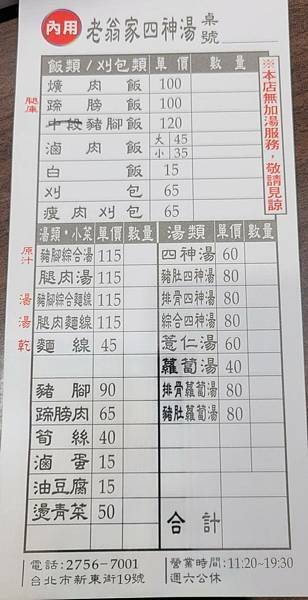 內用 老翁家四神湯 桌號
飯類/刈包類 單價 數量
爌肉飯 100
腿庫 蹄膀飯 100
中段豬腳飯 120
滷肉飯 大 45
小 35
白飯 15
刈包 65
瘦肉刈包 65
※本店無加湯服務，敬請見諒
湯類·小菜 單價 數量 湯類 單價 數量
原汁 豬腳綜合湯 115 四神湯 60
腿肉湯 115 豬肚四神湯 80
湯 豬腳綜合麵線 115 排骨四神湯 80
湯 腿肉麵線 115 綜合四神湯 80
乾 麵線 45 薏仁湯 60
蘿蔔湯 40
豬腳 90 排骨蘿蔔湯 80
蹄膀肉 65 豬肚蘿蔔湯 80
筍絲 40
滷蛋 15
油豆腐 15
燙青菜 50
合計
電話:2756-7001 營業時間:11:20~19:30
台北市新東街19號 週六公休